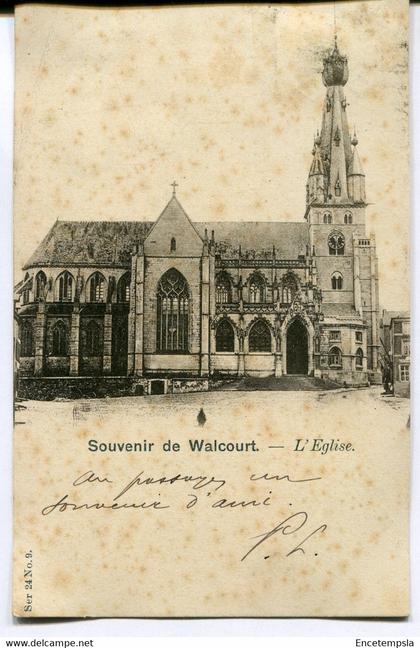 Souvenir de Walcourt. — L'Eglise.
Au passage, un
souvenir d'ami.
P. L.
Ser 24 No. 9.
www.delcampe.net
Encetempsla